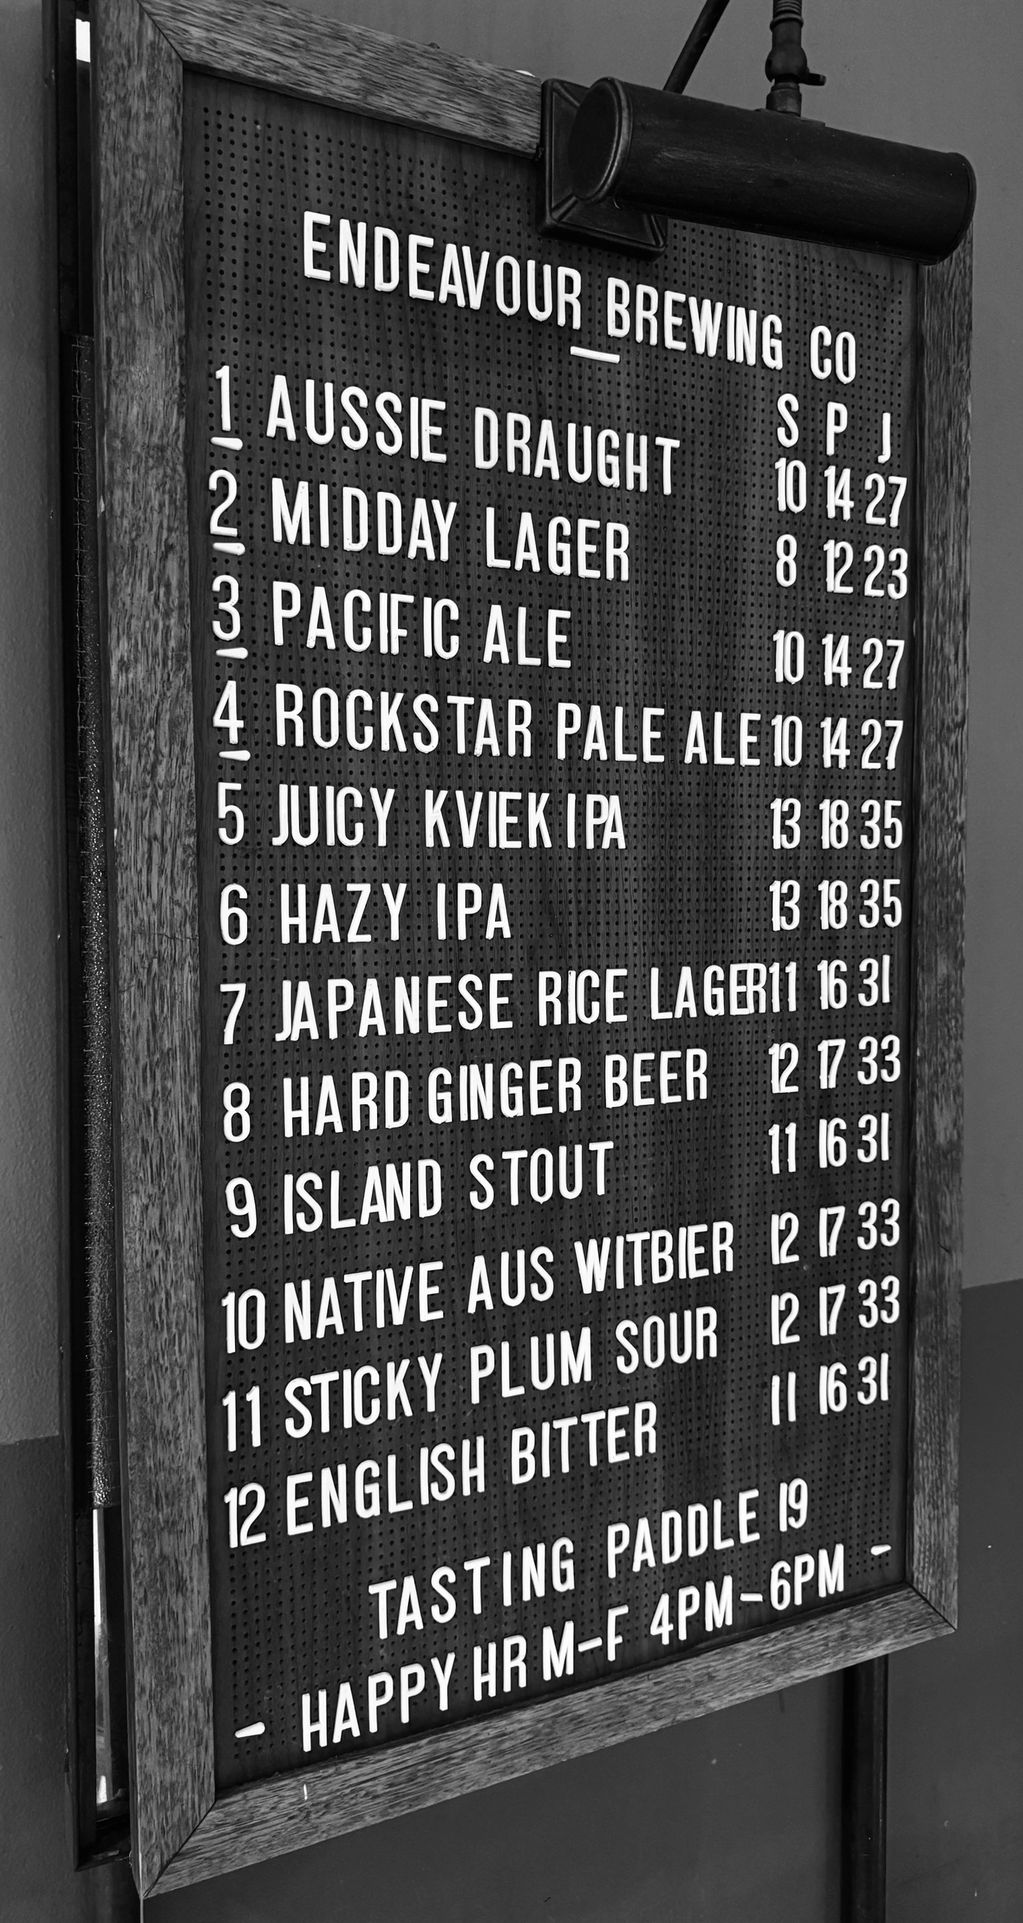 ENDEAVOUR BREWING CO
S P J
1 AUSSIE DRAUGHT 10 14 27
2 MIDDAY LAGER 8 12 23
3 PACIFIC ALE 10 14 27
4 ROCKSTAR PALE ALE 10 14 27
5 JUICY KVIEK IPA 13 18 35
6 HAZY IPA 13 18 35
7 JAPANESE RICE LAGER 11 16 31
8 HARD GINGER BEER 12 17 33
9 ISLAND STOUT 11 16 31
10 NATIVE AUS WITBIER 12 17 33
11 STICKY PLUM SOUR 12 17 33
12 ENGLISH BITTER 11 16 31
TASTING PADDLE 19
- HAPPY HR M-F 4PM-6PM -